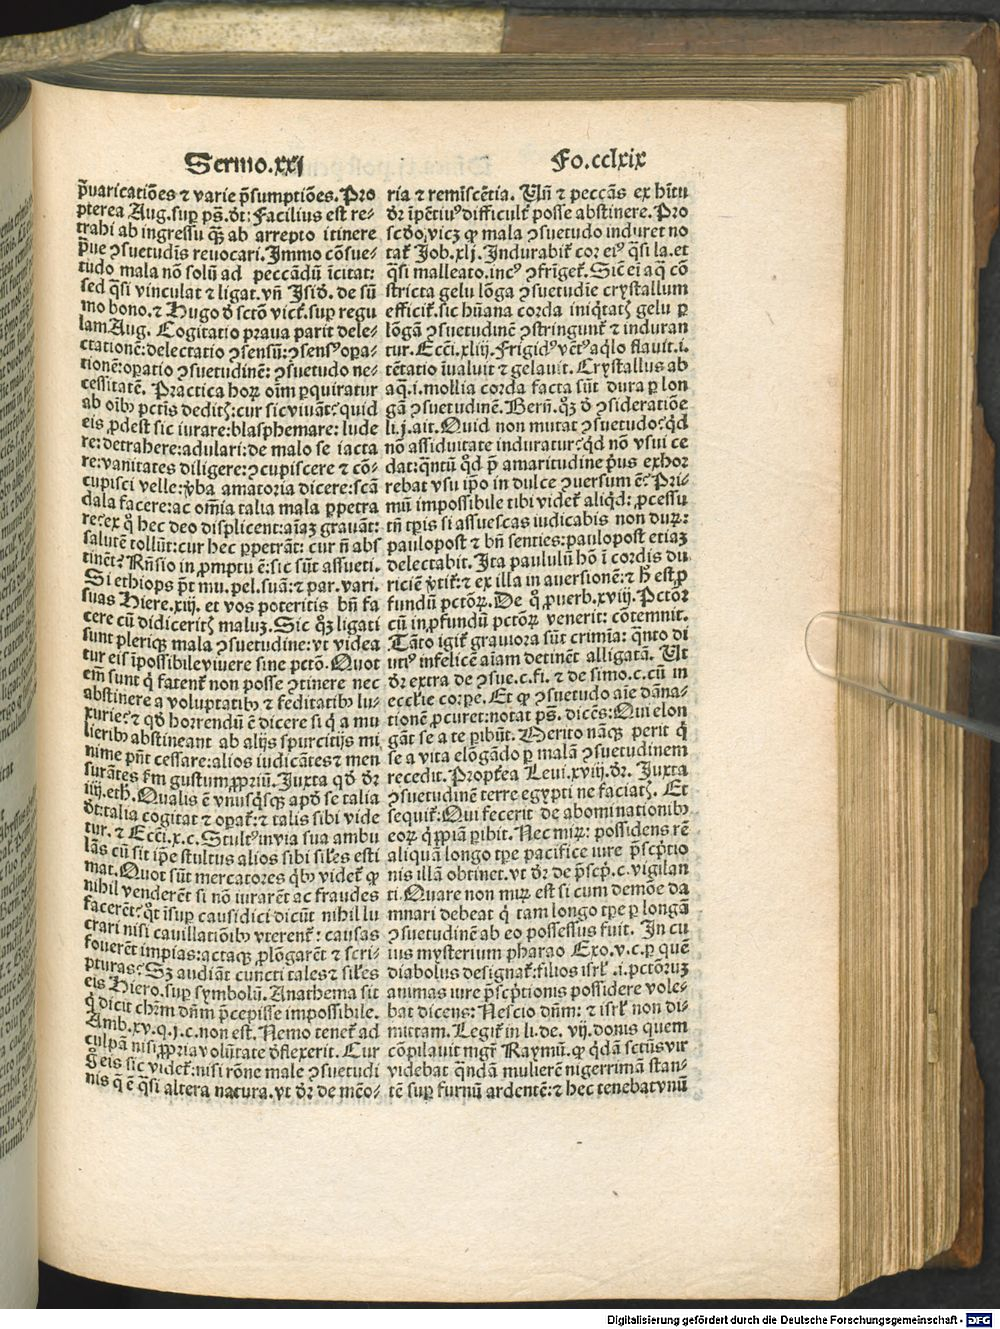 Sermo.xxj
Fo.cclxix
p̄uaricatiões ⁊ varie p̄sumptiões. Pro
pterea Aug. suꝑ ps̄. ðt: Facilius est re-
trahi ab ingressu qꝫ ab arrepto itinere
p̄ue ꝯsuetudīs reuocari. Immo cōsue-
tudo mala nō solū ad peccādū īcitat:
sed q̄si vinculat ⁊ ligat. vñ Isið. de sū
mo bono. ⁊ Hugo ð sctō vict. suꝑ regu
lam Aug. Cogitatio praua parit dele-
ctationē: delectatio ꝯsensū: ꝯsensꝰ oꝑa-
tionē: oꝑatio ꝯsuetudinē: ꝯsuetudo ne-
cessitatē. Practica horꝝ oīm ꝑquiratur
ab oībꝰ pctīs deditꝭ: cur sic viuāt? quid
eis ꝓdest sic iurare: blasphemare: lude
re: detrahere: adulari: de malo se iacta
re: vanitates diligere: ꝯcupiscere ⁊ cō-
cupisci velle: v̄ba amatoria dicere: scā
dala facere: ac om̄ia talia mala ꝑpetra
re? ex q̊ hec deo displicent: aīaꝫ grauāt:
salutē tollūt: cur hec ꝑpetrāt: cur ñ abs
tinēt? Rñsio in ꝓmptu ē: sic sūt assueti.
Si ethiops p̄t mu. pel. suā: ⁊ par. vari.
suas Hiere.xiij. et vos poteritis bñ fa
cere cū didiceritꝭ maluꝫ. Sic qꝫ ligati
sunt pleriqꝫ mala ꝯsuetudine: vt videa
tur eis īpossibile viuere sine pctō. Quot
em̄ sunt q̇ fatenẗ non posse ꝯtinere nec
abstinere a voluptatibꝰ ⁊ feditatibꝰ lu-
xurie? ⁊ qð horrendū ē dicere si q̇ a mu
lieribꝰ abstineant ab alijs spurcitijs mi
nime pñt cessare: alios iudicātes ⁊ men
surātes ẜm gustum ꝓpriū. Juxta qð ðr
iiij. eth. Qualis ē vnusq̇sqꝫ apð se talia
ðt: talia cogitat ⁊ oꝑat: ⁊ talis sibi vide
tur. ⁊ Ecci.x.c. Stultꝰ in via sua ambu
lās cū sit ip̄e stultus alios sibi sil̄es esti
mat. Quot sūt mercatores qbꝰ videt̄ ꝙ
nihil venderēt si nō iurarēt ac fraudes
facerēt? qt̄ īsuꝑ causidici dicūt nihil lu
crari nisi cauillatiōibꝰ vterent̄: causas
fouerēt impias: actaqꝫ ꝓlōgarēt ⁊ scri-
pturas? Sꝫ audiāt cuncti tales ⁊ sil̄es
eis Hiero. suꝑ symbolū. Anathema sit
q̇ dicit chr̄m dñm p̄cepisse impossibile.
Amb.xv.q.j.c.non est. Nemo tenet̄ ad
culpā nisi ꝓpria volūtate ðflexerit. Cur
g̊ eis sic videt̄: nisi rōne male ꝯsuetudi
nis q̄ ē q̄si altera natura. vt ðr de mēo-
ria ⁊ remīscētia. Vñ ⁊ peccās ex hītu
ðr īpētiꝰ difficult̄ posse abstinere. Pro
scðo, vicꝫ ꝙ mala ꝯsuetudo induret no
tat̄ Job.xlj. Indurabit̄ cor eiꝰ q̄si la. et
q̄si malleato. incꝰ ꝯfriget̄. Sic̄ ei aq̄ cō
stricta gelu lōga ꝯsuetudīe crystallum
efficit̄. sic hūana corda iniq̇tatꝭ gelu ꝑ
lōgā ꝯsuetudinē ꝯstringunt̄ ⁊ induran
tur. Ecci.xliij. Frigidꝰ vētꝰ aq̇lo flauit. i.
tētatio īualuit ⁊ gelauit. Crystallus ab
aq̄. i. mollia corda facta sūt dura ꝑ lon
gā ꝯsuetudinē. Berñ. qꝫ ð ꝯsideratiōe
li.j. ait. Quid non mutat ꝯsuetudo? q̇d
nō assiduitate induratur? q̇d nō vsui ce
dat: q̄ntū q̊d p̄ amaritudine p̄us exhor
rebat vsu ip̄o in dulce ꝯuersum ē? Pri-
mū impossibile tibi videt̄ aliq̇d: ꝓcessu
tñ tꝑis si assuescas iudicabis non duꝝ:
paulopost ⁊ bñ senties: paulopost etiaꝫ
delectabit. Ita paululū hō ī cordis du
riciē v̄tit̄: ⁊ ex illa in auersionē: ⁊ h̄ est ꝓ
fundū pctōꝝ. De q̊ ꝓuerb.xviij. Pctōr
cū in ꝓfundū pctōꝝ venerit: cōtemnit.
Tāto igit̄ grauiora sūt crimīa: q̄nto di
utiꝰ infelicē aīam detinēt alligatā. Vt
ðr extra de ꝯsue.c.fi. ⁊ de simo.c.cū in
eccl̄ie corꝑe. Et ꝙ ꝯsuetudo aīe dāna-
tionē ꝓcuret: notat ps̄. dicēs: Qui elon
gāt se a te ꝑibūt. Merito nāqꝫ perit q̇
se a vita elōgādo ꝑ malā ꝯsuetudinem
recedit. Propt̄ea Leui.xviij. ðr. Juxta
ꝯsuetudinē terre egypti ne faciatꝭ. Et
sequit̄: Qui fecerit de abominationibꝰ
eoꝝ q̇ppiā ꝑibit. Nec miꝝ: possidens rē
aliquā longo tꝑe pacifice iure p̄scptio
nis illā obtinet. vt ðr de p̄scp.c.vigilan
ti. Quare non miꝝ est si cum demōe da
mnari debeat q̇ tam longo tꝑe ꝑ longā
ꝯsuetudinē ab eo possessus fuit. In cu
ius mysterium pharao Exo.v.c. ꝑ quē
diabolus designat̄: filios isrl̄ .i. pctōruꝫ
animas iure p̄scptionis possidere vole-
bat dicens: Nescio dñm: ⁊ isrl̄ non di-
mittam. Legit̄ in li. de. vij. donis quem
cōpilauit mgr̄ Raymū. ꝙ q̇dā sctūs vir
videbat q̄ndā mulierē nigerrimā stan-
tē suꝑ furnū ardentē: ⁊ hec tenebat vnū
Digitalisierung gefördert durch die Deutsche Forschungsgemeinschaft - DFG